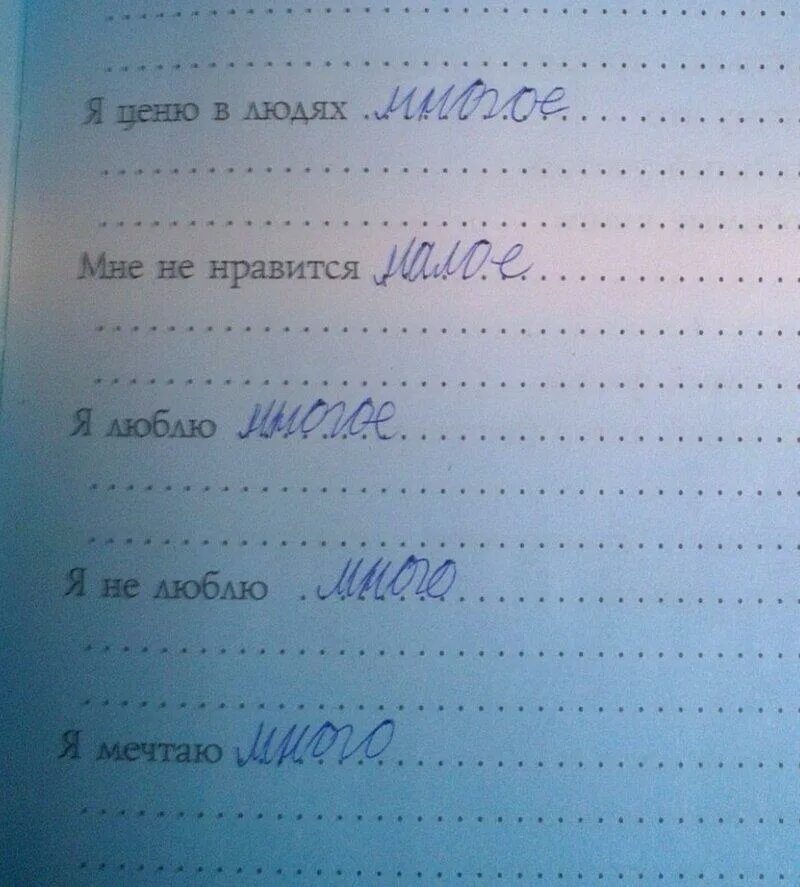 Я ценю в людях многое
Мне не нравится малое
Я люблю многое
Я не люблю много
Я мечтаю много